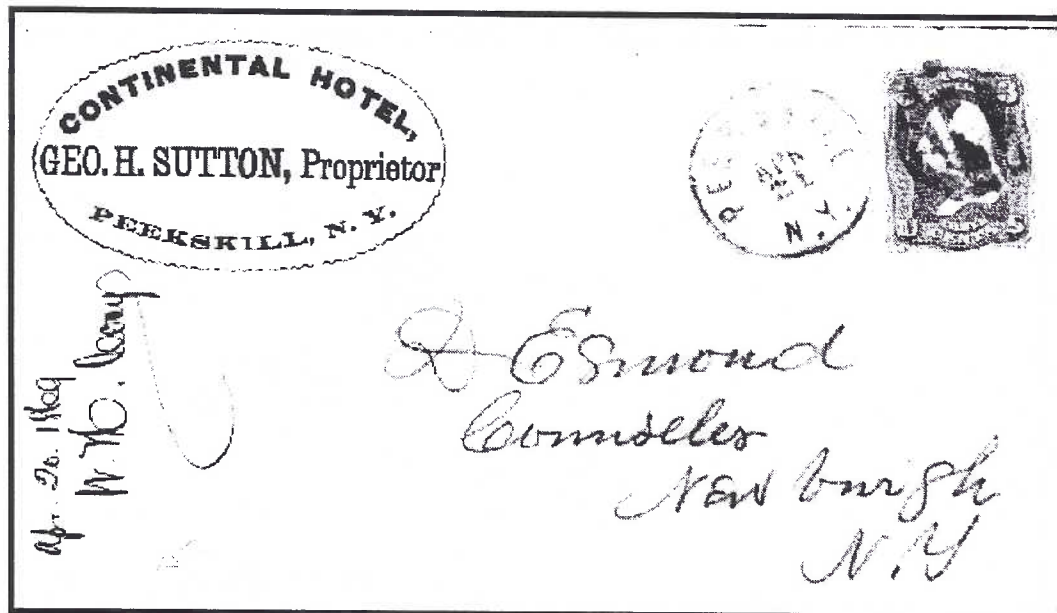 CONTINENTAL HOTEL,
GEO. H. SUTTON, Proprietor
PEEKSKILL, N. Y.
PEEKSKILL
APR
21
N.Y.
3 3
Ap. 20. 1869
D Esmond
Counseller
Newburgh
N.Y